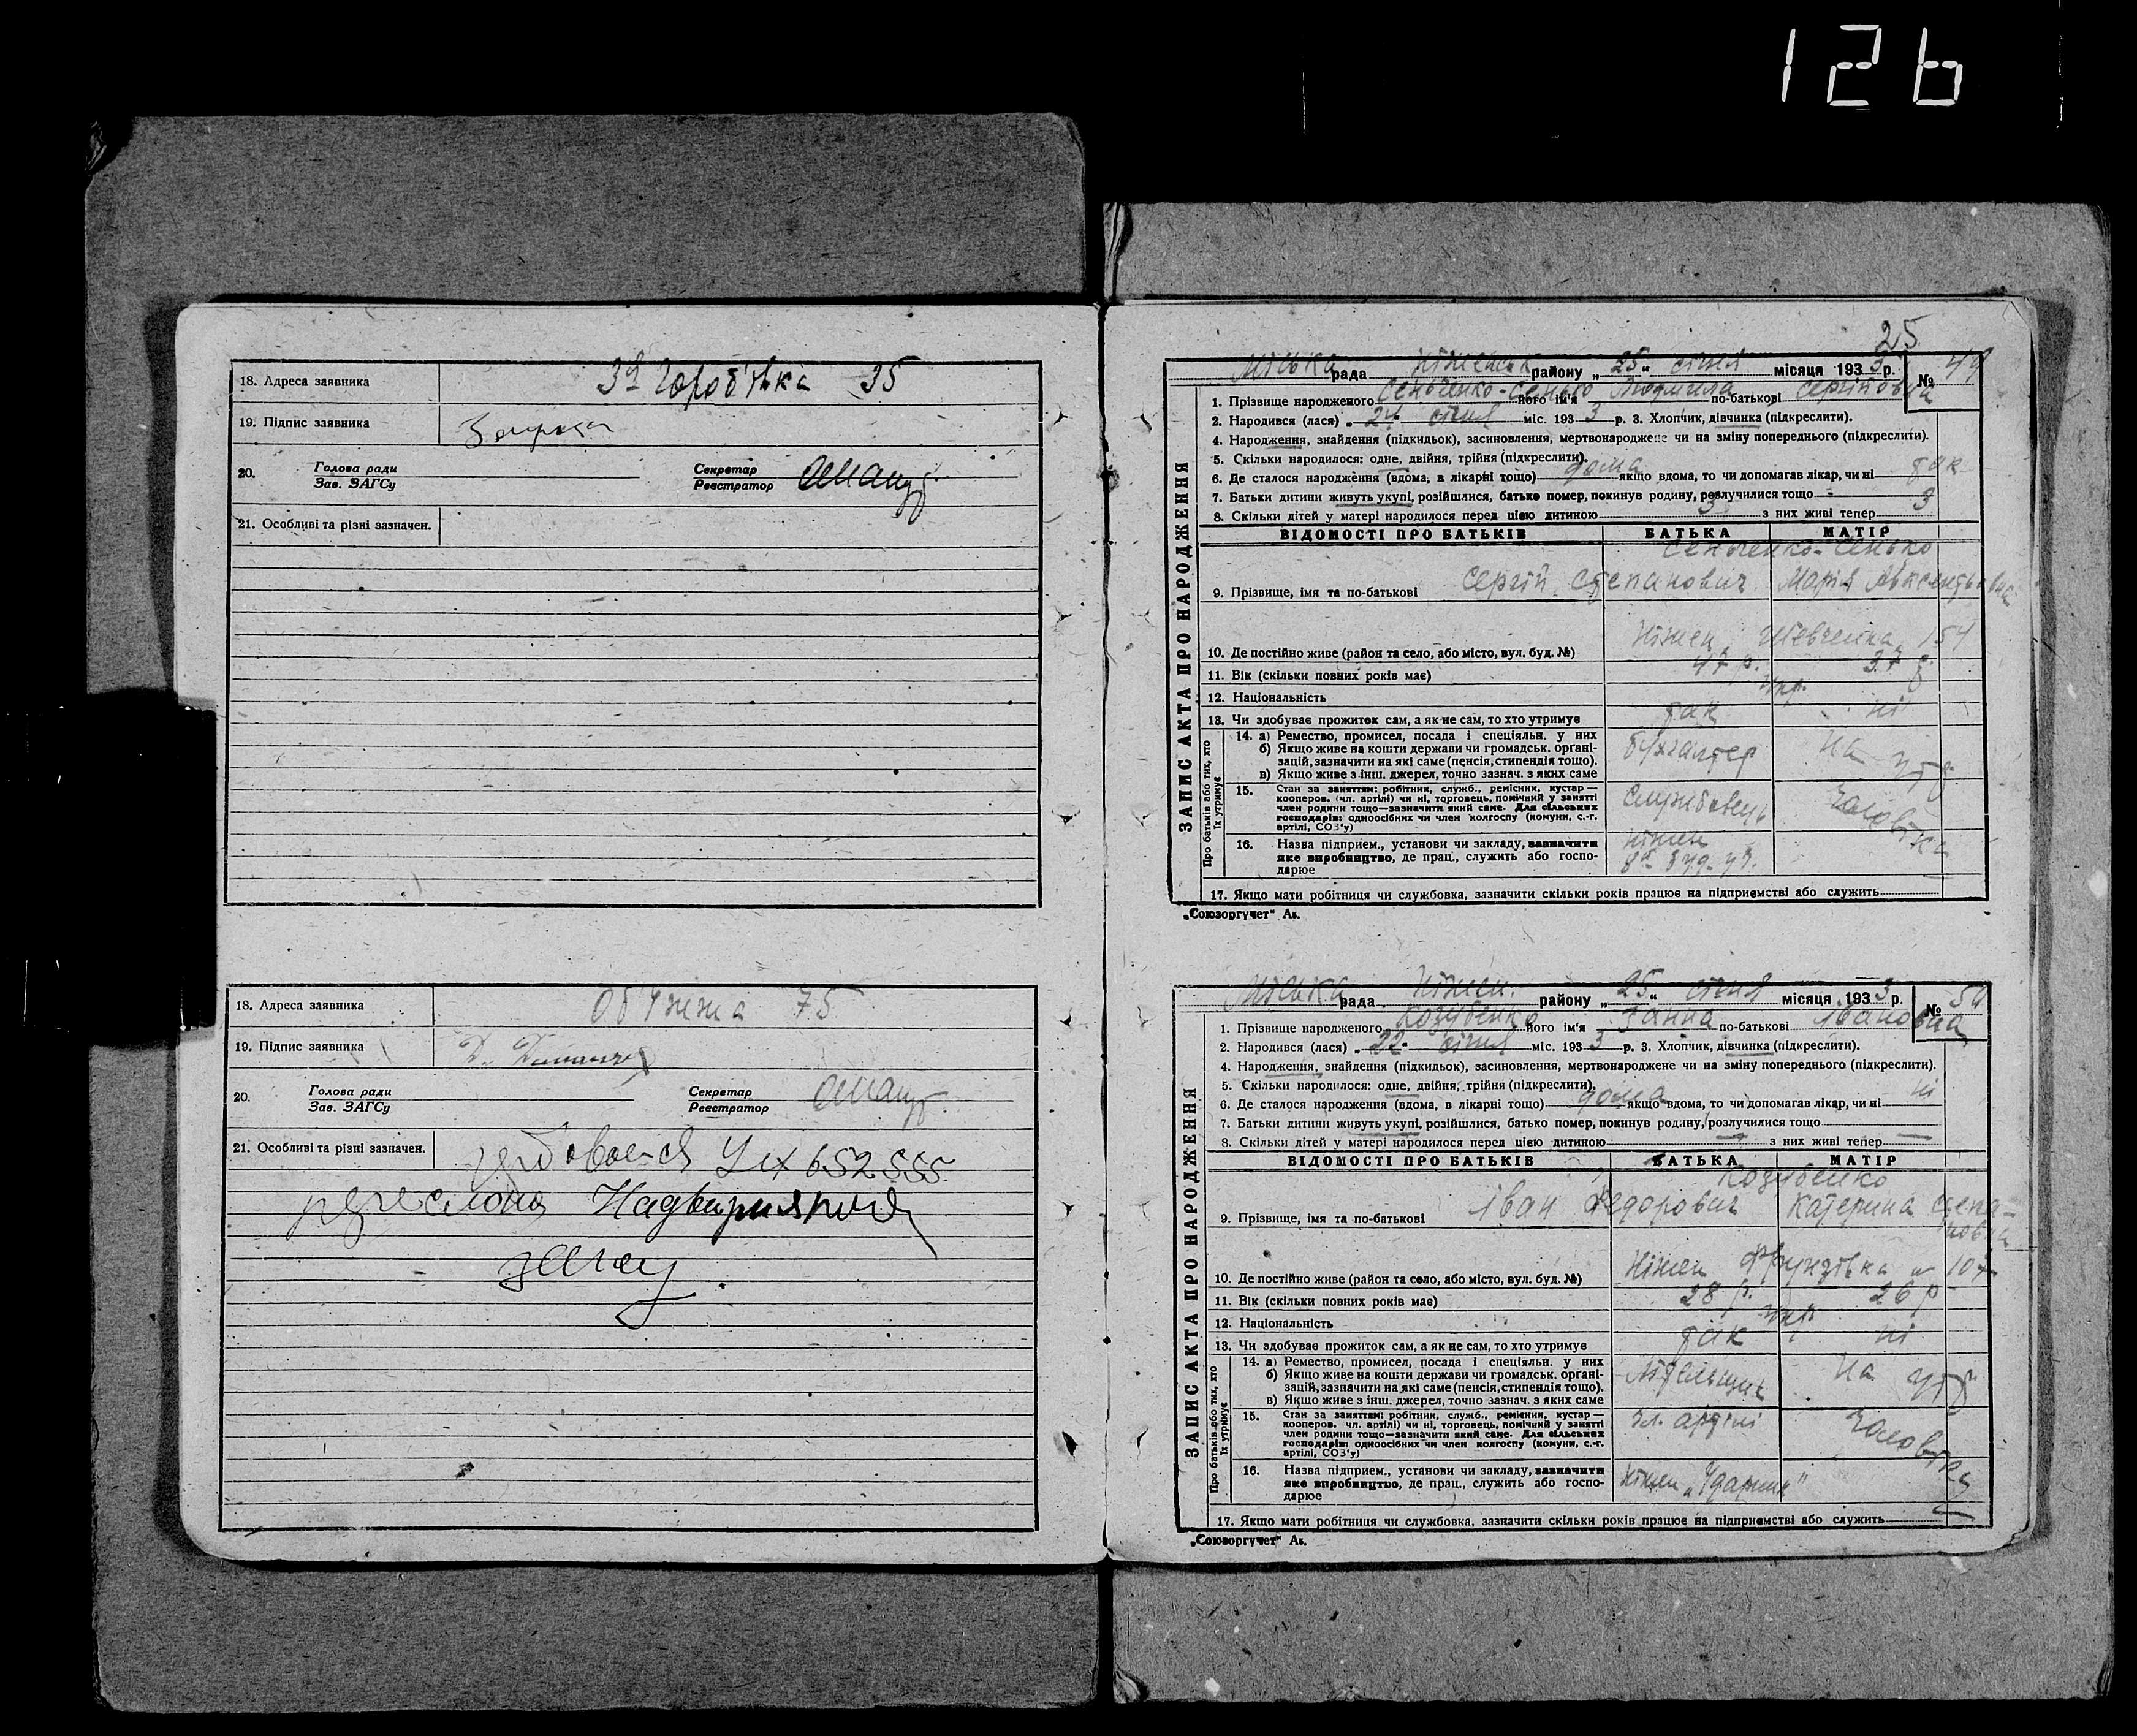 126
18. Адреса заявника
3я Гороб'ївка 35
19. Підпис заявника
20. Голова ради
Зав. ЗАГСу
Секретар
Реєстратор
21. Особливі та різні зазначен.
18. Адреса заявника
Об'їжжа 75
19. Підпис заявника
20. Голова ради
Зав. ЗАГСу
Секретар
Реєстратор
21. Особливі та різні зазначен.
652555
25
ЗАПИС АКТА ПРО НАРОДЖЕННЯ
Міська рада Ніженськ району „25“ січня місяця 1933 р. № 49
1. Прізвище народженого Сенченко-Сенько його ім'я Людмила по-батькові Сергіївна
2. Народився (лася) „24“ січня міс. 1933 р. 3. Хлопчик, дівчинка (підкреслити).
4. Народження, знайдення (підкидьок), засиновлення, мертвонароджене чи на зміну попереднього (підкреслити).
5. Скільки народилося: одне, двійня, трійня (підкреслити).
6. Де сталося народження (вдома, в лікарні тощо) дома якщо вдома, то чи допомагав лікар, чи ні так
7. Батьки дитини живуть укупі, розійшлися, батько помер, покинув родину, розлучилися тощо
8. Скільки дітей у матері народилося перед цією дитиною 3 з них живі тепер 3
ВІДОМОСТІ ПРО БАТЬКІВ БАТЬКА МАТІР
Сенченко-Сенько
9. Прізвище, імя та по-батькові Сергій Степанович Марія Автентьевна
10. Де постійно живе (район та село, або місто, вул. буд. №) Ніжен Шевченка 154
11. Вік (скільки повних років має) 47 р. 37 р.
12. Національність укр.
13. Чи здобуває прожиток сам, а як не сам, то хто утримує так ні
Про батьків або тих, хто їх утримує
14. а) Ремество, промисел, посада і спеціяльн. у них
б) Якщо живе на кошти держави чи громадськ. організацій, зазначити на які саме (пенсія, стипендія тощо).
в) Якщо живе з інш. джерел, точно зазнач. з яких саме
бухгалтер На утр.
15. Стан за заняттям: робітник, служб., ремісник, кустар—
кооперов. (чл. артілі) чи ні, торговець, помічний у занятті
член родини тощо—зазначити який саме. Для сільських
господарів: одноосібних чи член колгоспу (комуни, с.-г.
артілі, СОЗ'у)
Службовець чоловіка
16. Назва підприєм., установи чи закладу, зазначити
яке виробництво, де прац., служить або господарює
Ніжен
17. Якщо мати робітниця чи службовка, зазначити скільки років працює на підприємстві або служить
„Союзоргучет“ Аг.
ЗАПИС АКТА ПРО НАРОДЖЕННЯ
Міська рада Ніжен. району „25“ січня місяця 1933 р. № 50
1. Прізвище народженого Козубенко його ім'я Ганна по-батькові Івановна
2. Народився (лася) „22“ січня міс. 1933 р. 3. Хлопчик, дівчинка (підкреслити).
4. Народження, знайдення (підкидьок), засиновлення, мертвонароджене чи на зміну попереднього (підкреслити).
5. Скільки народилося: одне, двійня, трійня (підкреслити).
6. Де сталося народження (вдома, в лікарні тощо) дома якщо вдома, то чи допомагав лікар, чи ні ні
7. Батьки дитини живуть укупі, розійшлися, батько помер, покинув родину, розлучилися тощо
8. Скільки дітей у матері народилося перед цією дитиною — з них живі тепер —
ВІДОМОСТІ ПРО БАТЬКІВ БАТЬКА МАТІР
Козубенко
9. Прізвище, імя та по-батькові Іван Федорович Катерина Степановна
10. Де постійно живе (район та село, або місто, вул. буд. №) Ніжен Фрунзівка 107
11. Вік (скільки повних років має) 28 р. 26 р
12. Національність укр.
13. Чи здобуває прожиток сам, а як не сам, то хто утримує так ні
Про батьків або тих, хто їх утримує
14. а) Ремество, промисел, посада і спеціяльн. у них
б) Якщо живе на кошти держави чи громадськ. організацій, зазначити на які саме (пенсія, стипендія тощо).
в) Якщо живе з інш. джерел, точно зазнач. з яких саме
На утр
15. Стан за заняттям: робітник, служб., ремісник, кустар—
кооперов. чл. артілі) чи ні, торговець, помічний у занятті
член родини тощо—зазначити який саме. Для сільських
господарів: одноосібних чи член колгоспу (комуни, с.-г.
артілі, СОЗ'у)
чл. артілі чоловіка
16. Назва підприєм., установи чи закладу, зазначити
яке виробництво, де прац., служить або господарює
Ніжен „Ударник“
17. Якщо мати робітниця чи службовка, зазначити скільки років працює на підприємстві або служить
„Союзоргучет“ Аг.